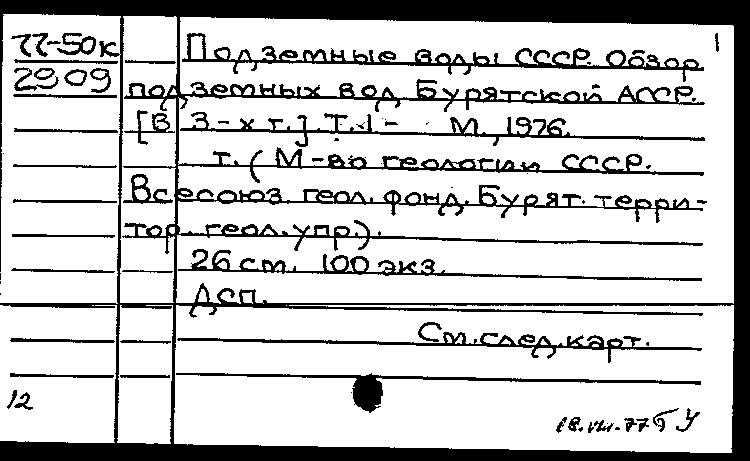 77-50к Подземные воды СССР. Обзор 1
2909 подземных вод Бурятской АССР.
[В 3-х т.]. Т. 1 - М., 1976.
т. (М-во геологии СССР.
Всесоюз. геол. фонд. Бурят. терри-
тор. геол. упр.).
26 см. 100 экз.
Дсп.
См. след. карт.
12
18.VIII.77